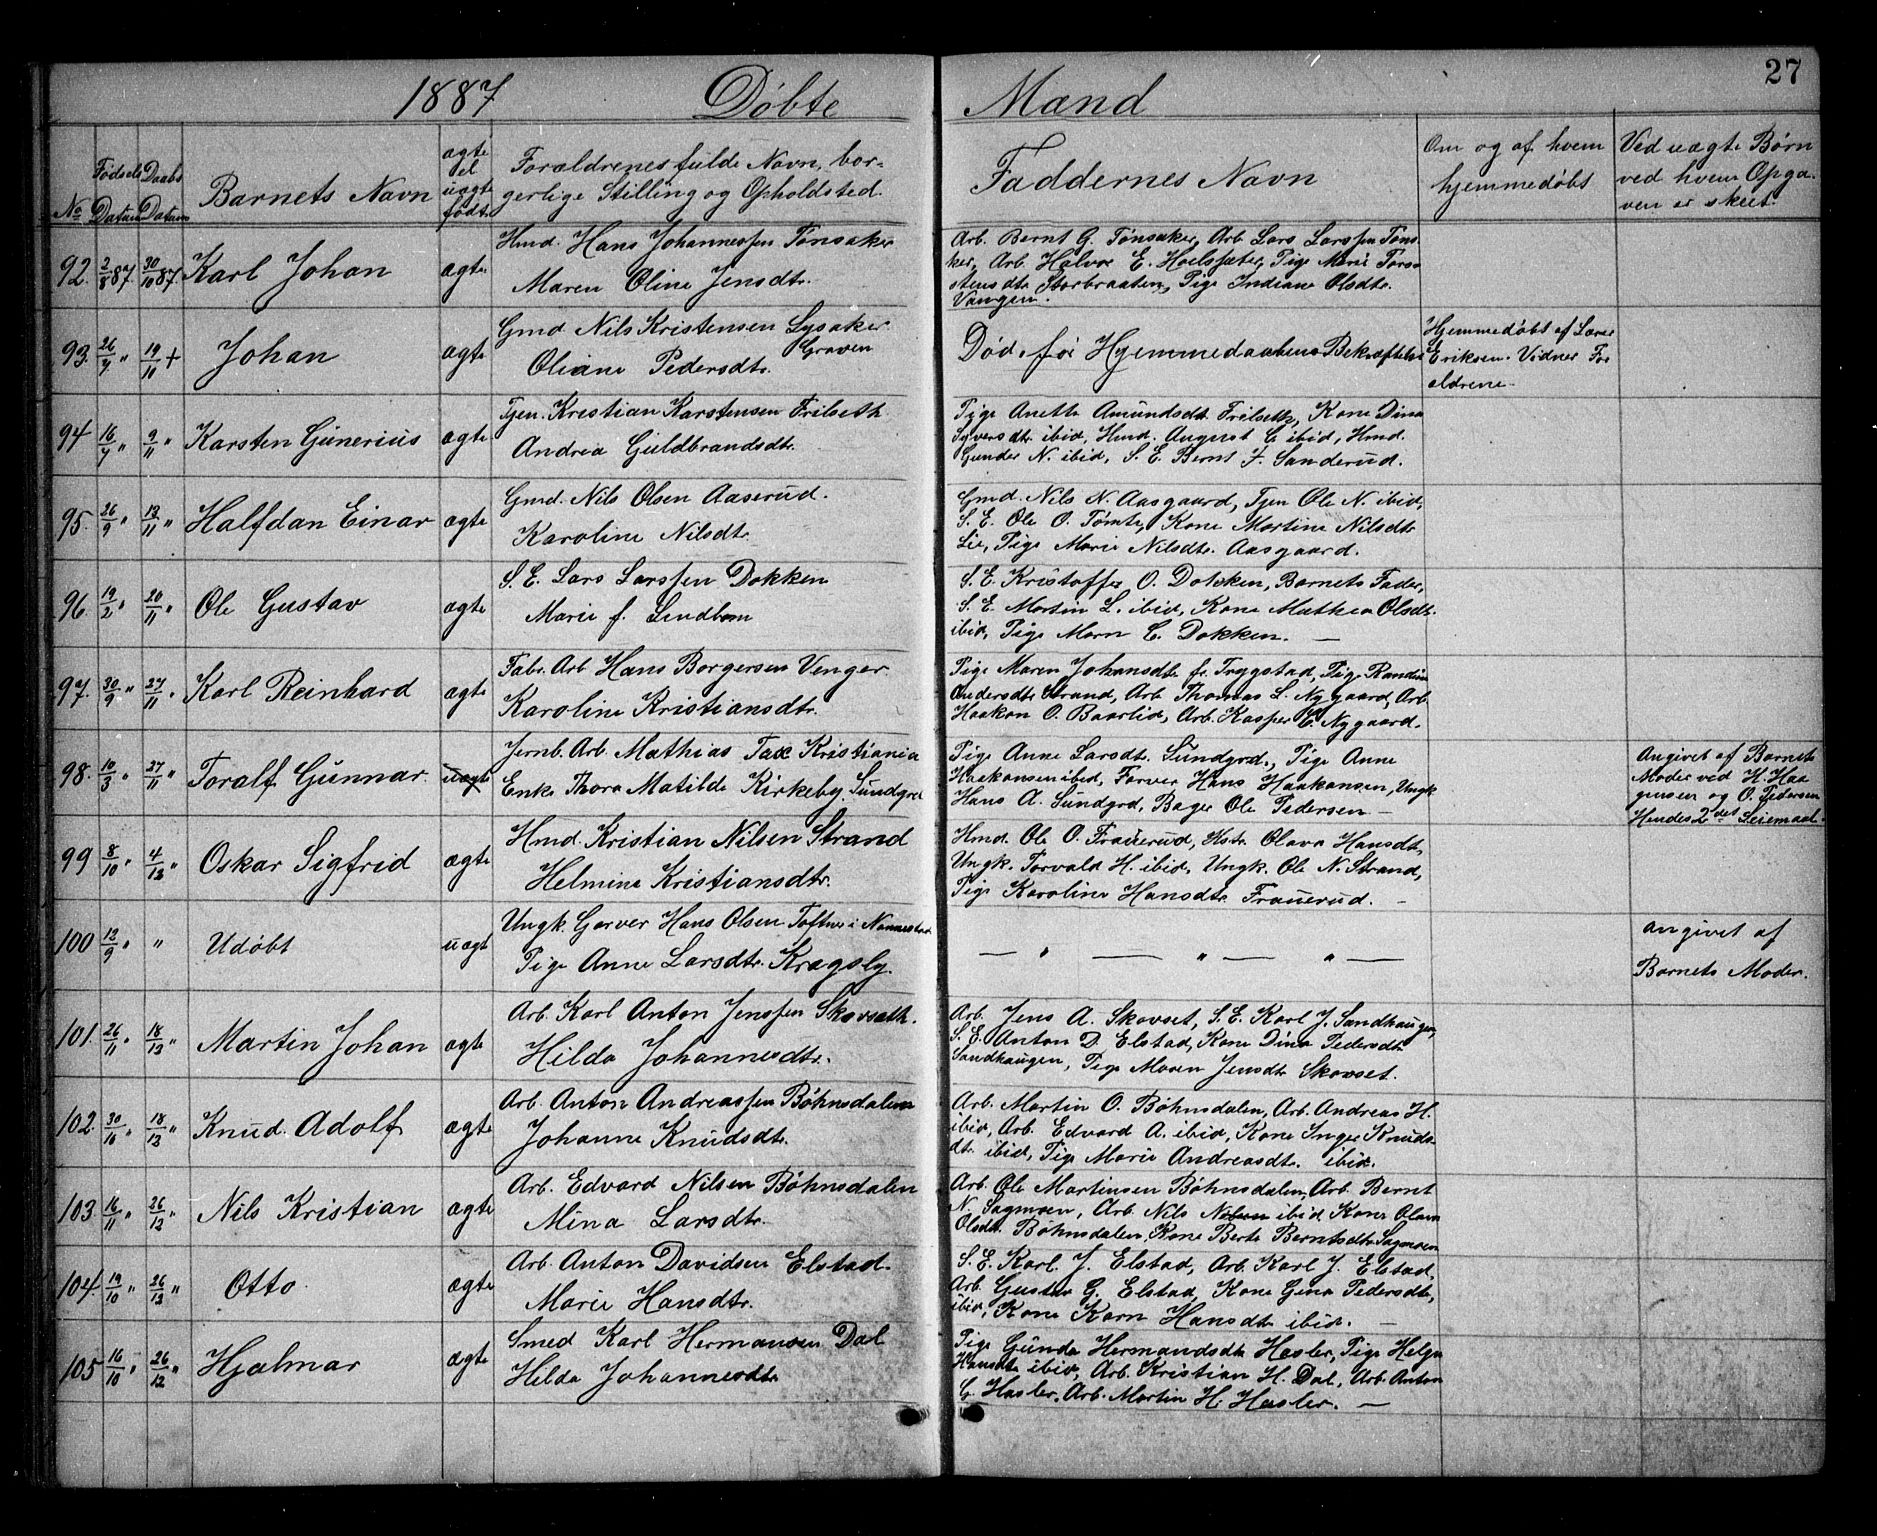 27
1887 Døbte Mænd
No
Fødsels Datum
Daabs Datum
Barnets Navn
ægte el uægte født
Forældrenes fulde Navn, borgerlige Stilling og Opholdsted.
Faddernes Navn
Om og af hvem hjemmedøbt
Ved uægte Børn ved hvem Opgaven er skeet.
92. 2/8 87. 30/10 87. Karl Johan ægte
Hmd. Hans Johannessen Tønsaker
Maren Oline Jensdtr.
Arb. Bernt G. Tønsaker, Arb. Lars Larssen Tøns
ker, Arb. Halvor E. Hoelsæter, Pige Marie Tors
stensdtr Storbraaten, Pige Indiane Olsdtr.
Vangen.
93. 26/7 " 19/10 + Johan ægte
Gmd. Nils Kristensen Lysaker
Graven
Oliane Pedersdtr.
Død før Hjemmedaabens Bekræftelse
Hjemmedøbt af Lærer
Eriksen. Vidner For
ældrene.
94 16/7 " 9/11 " Karsten Gunerius ægte
Tjen. Kristian Karstensen Frilseth
Andrea Guldbrandsdtr.
Pige Anette Amundsdtr. Frilseth, Kone Dina
Syversdtr. ibid, Hmd. August C. ibid, Hmd.
Gunder N. ibid, S. E. Bernt F. Sanderud.
95. 26/9 " 13/11 " Halfdan Einar ægte
Gmd. Nils Olsen Aaserud.
Karoline Nilsdtr.
Gmd. Nils N. Aasgaard, Tjen Ole N. ibid,
S. E. Ole O. Tømte, Kone Martine Nilsdtr
Lie, Pige Marie Nilsdtr. Aasgaard.
96. 19/2 " 20/11 " Ole Gustav ægte
S. E. Lars Larssen Dokken
Marie f. Lindbom
S. E. Kristoffer O. Dokken, Barnets Fader,
S. E. Martin L. ibid, Kone Mathea Olsdtr.
ibid, Pige Marn C. Dokken. —
97. 30/9 " 27/11 " Karl Reinhard ægte
Fabr. Arb Hans Borgersen Venger
Karoline Kristiansdtr.
Pige Maren Johansdtr fr. Trygstad, Pige Randine
Andersdtr Strand, Arb. Thomas L. Nygaard, Arb.
Haakon O. Baarlid, Arb. Kasper C. Nygaard.
98. 10/3 " 27/11 " Toralf Gunnar. uægte
Jernb. Arb. Mathias Fax Kristiania
Enke Thora Matilde Kirkeby. Sundgrd
Pige Anne Larsdtr. Sundgrd., Pige Anne
Haakonsen ibid, Farver Hans Haakonsen, Ungk
Hans A. Sundgrd, Bager Ole Pedersen —
Angivet af Barnets
Moder ved H. Haa
gensen og O. Pedersen
Hendes 2det Leiemaal.
99 8/10 " 4/12 " Oskar Sigfrid ægte
Hmd. Kristian Nilsen Strand
Helmine Kristiansdtr.
Hmd. Ole O. Frauerud, Hstr. Olava Hansdtr,
Ungk. Torvald H. ibid, Ungk. Ole N. Strand,
Pige Karoline Hansdtr. Frauerud. —
100 12/9 " " Udøbt uægt
Ungk. Garver Hans Olsen Toftner i Nannestad
Pige Anne Larsdtr. Kragsby.
— " — " — " —
angivet af
Barnets Moder.
101. 26/11 " 18/12 " Martin Johan ægte
Arb. Karl Anton Jenssen Skovseth.
Hilda Johannesdtr.
Arb. Jens A. Skovset, S. E. Karl J. Sandhaugen,
S. E. Anton D. Elstad, Kone Dina Pedersdtr
Sandhaugen, Pige Maren Jensdtr Skovset.
102. 30/10 " 18/12 " Knud Adolf ægte
Arb. Anton Andreassen Bøhnsdalen
Johanne Knudsdtr.
Arb. Martin O. Bøhnsdalen, Arb. Andreas H.
ibid, Arb. Edvard A. ibid, Kone Inger Knuds
dtr. ibid, Pige Marie Andreasdtr. ibid.
103 16/11 " 26/12 " Nils Kristian ægte
Arb. Edvard Nilsen Bøhnsdalen
Mina Larsdtr.
Arb. Ole Martinsen Bøhnsdalen, Arb. Bernt
N. Sagmoen, Arb. Nils Nilsen ibid, Kone Olava
Olsdtr. Bøhnsdalen, Kone Berte Berntsdtr Sagmoen
104. 19/10 " 26/12 " Otto ægte
Arb. Anton Davidsen Elstad.
Marie Hansdtr.
S. E. Karl J. Elstad, Arb. Karl J. Elstad,
Arb. Gustav G. Elstad, Kone Gina Pedersdtr,
ibid, Kone Karn Hansdtr ibid. —
105 16/10 " 26/12 " Hjalmar ægte
Smed Karl Hermansen Dal
Hilda Johannesdtr
Pige Gunda Hermandsdtr Hasler, Pige Helga
Hansdtr ibid, Arb. Kristian H. Dal, Arb. Anton
G. Hasler, Arb. Martin H. Hasler. —